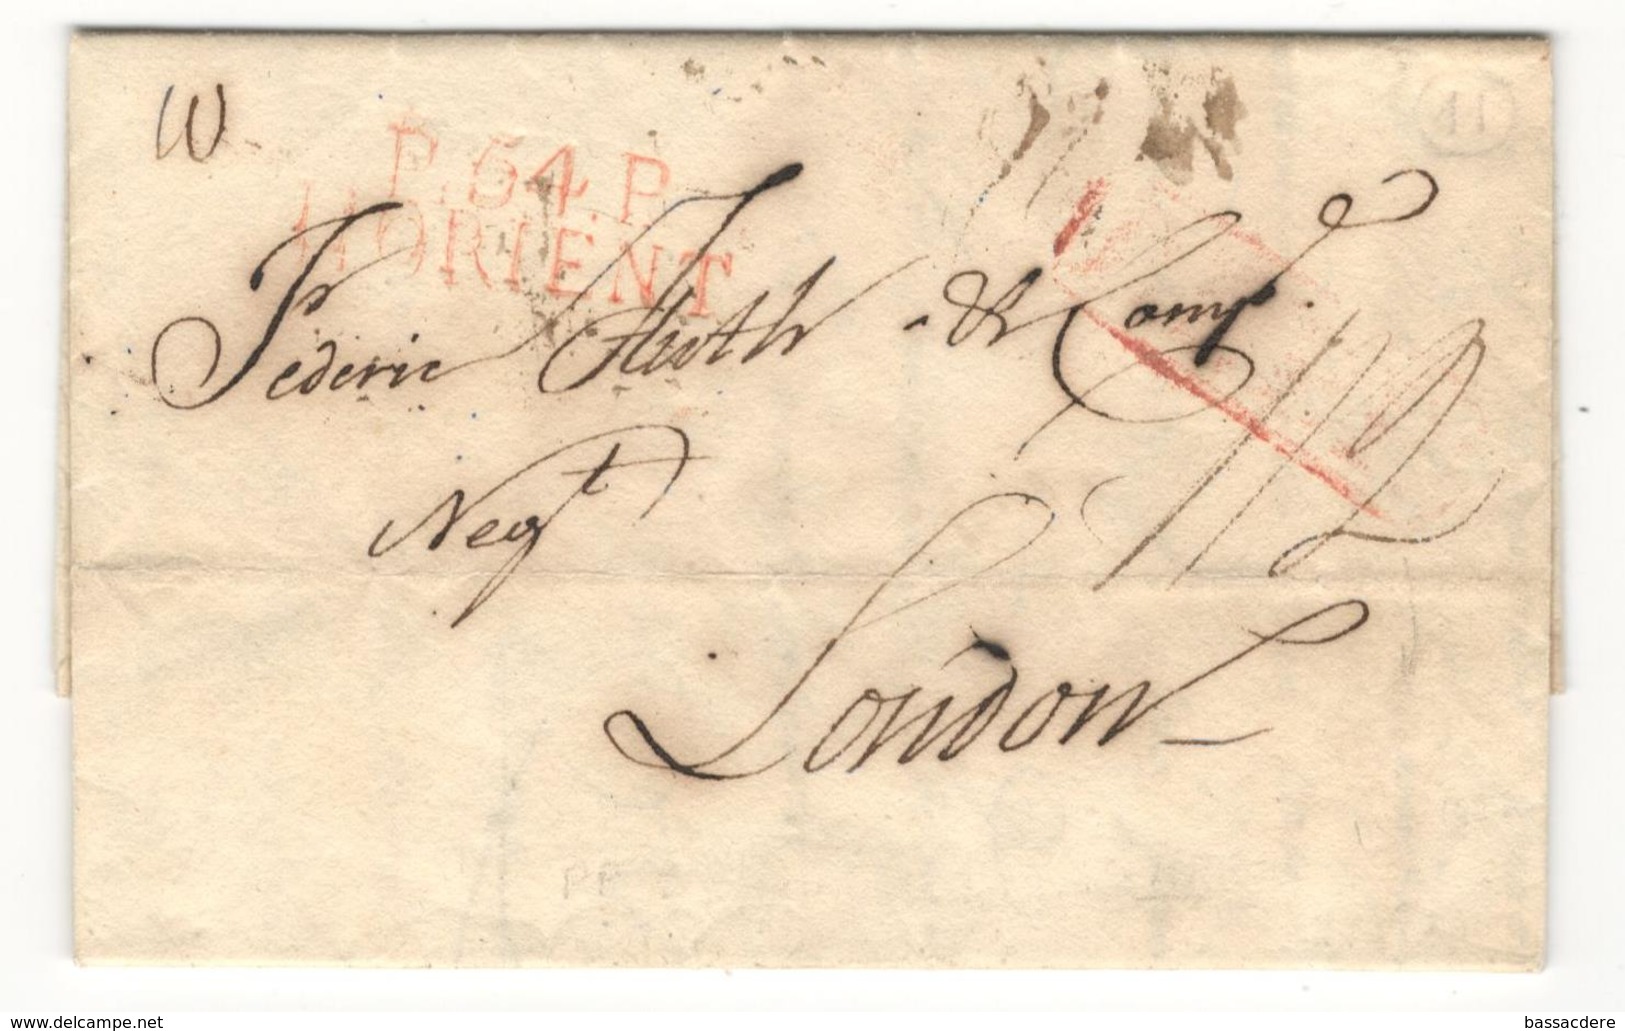 P.54.P.
L'ORIENT
Frederic Huth & Comp.
Negt
London
PP
www.delcampe.net
bassacdere